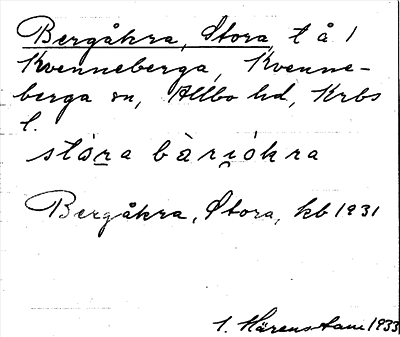 Bergåkra, Stora, t å 1
Kvenneberga, Kvenne-
berga sn, Allbo hd, Krbs
l.
stóra bàriókra
Bergåkra, Stora, kb 1931
1933